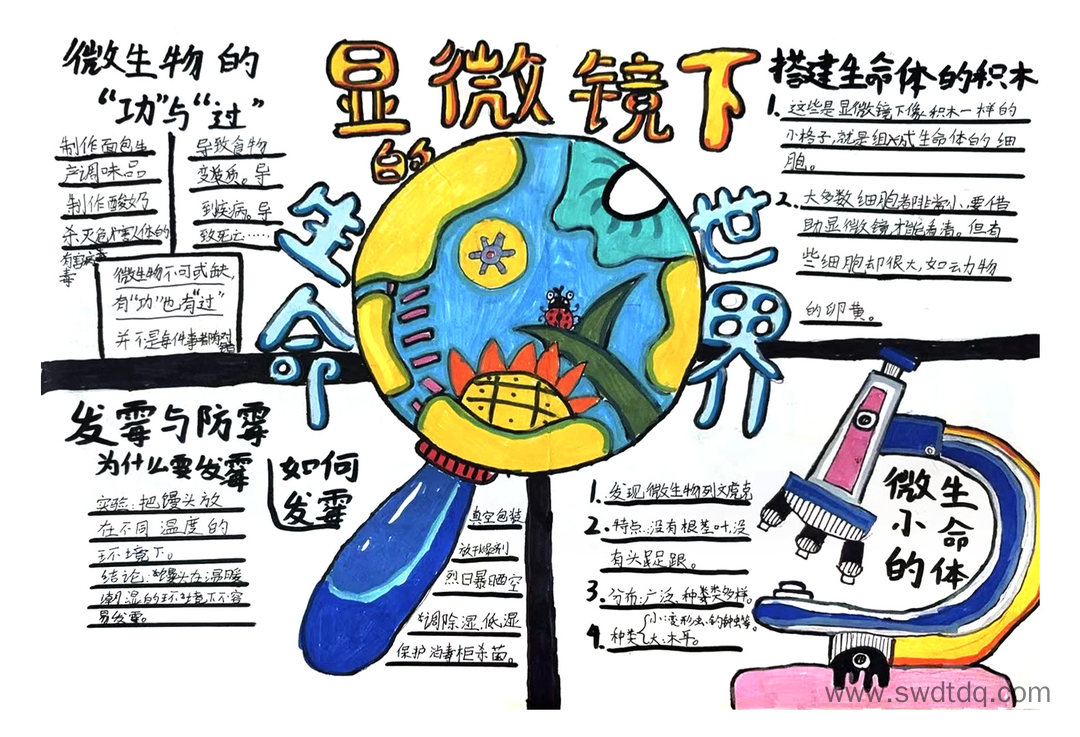 显微镜下
的
生命
世界
微生物的
“功”与“过”
制作面包生
产调味品
制作酸奶
杀灭危害人体的
有害病毒
毒
导致食物
变质。导
到疾病。导
致死亡……
微生物不可或缺,
有“功”也有“过”
并不是每件事都
搭建生命体的积木
1. 这些是显微镜下像积木一样的
小格子,就是组成生命体的细
胞。
2. 大多数细胞都非常小,要借
助显微镜才能看清。但有
些细胞却很大,如动物
的卵黄。
发霉与防霉
为什么要发霉
实验:把馒头放
在不同温度的
环境下。
结论:馒头在温暖
潮湿的环境下不容
易发霉。
如何
发霉
真空包装
放干燥剂
烈日暴晒空
调除湿,低湿
保护消毒柜杀菌。
1. 发现微生物列文虎克
2. 特点:没有根茎叶,没
有头足跟。
3. 分布:广泛,种类多样。
4. 种类{小:变形虫,钓钟虫等。
大:木耳。
微生
小 命
的体
www.swdtdq.com